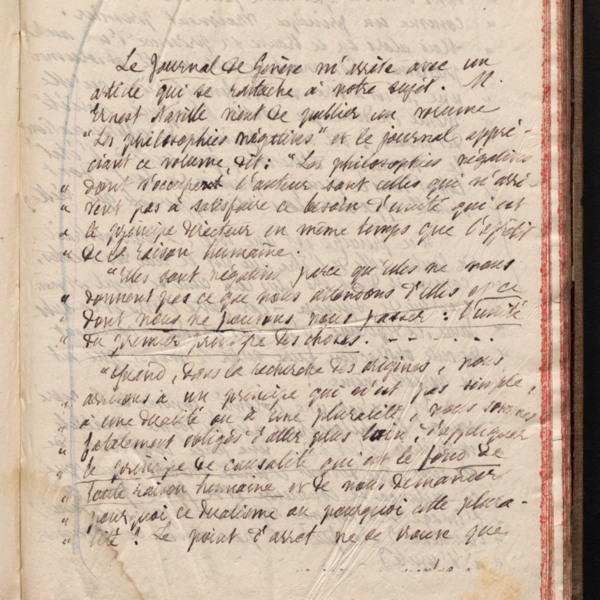 Le Journal de Genève m'arrête avec un
article qui se rattache à notre sujet. M.
Ernest Naville vient de publier un volume
"Les philosophies négatives" et le journal appré-
ciant ce volume, dit: "Les philosophies négatives
" dont s'occupent l'auteur sont celles qui n'arri-
" vent pas à satisfaire ce besoin d'unité qui est
" le principe directeur en même temps que l'effort
" de la raison humaine.
"Elles sont négatives parce qu'elles ne nous
" donnent pas ce que nous attendons d'elles et ce
" dont nous ne pouvons nous passer: l'unité
" du premier principe des choses. - - - - - -
"Quand, dans la recherche des origines, nous
" arrivons à un principe qui n'est pas simple,
" à une dualité ou à une pluralité, nous sommes
" fatalement obligés d'aller plus loin, d'appliquer
" le principe de causalité qui est le fond de
" toute raison humaine et de nous demander
" pourquoi ce dualisme ou pourquoi cette plura-
" lité". Le point d'arrêt ne se trouve que